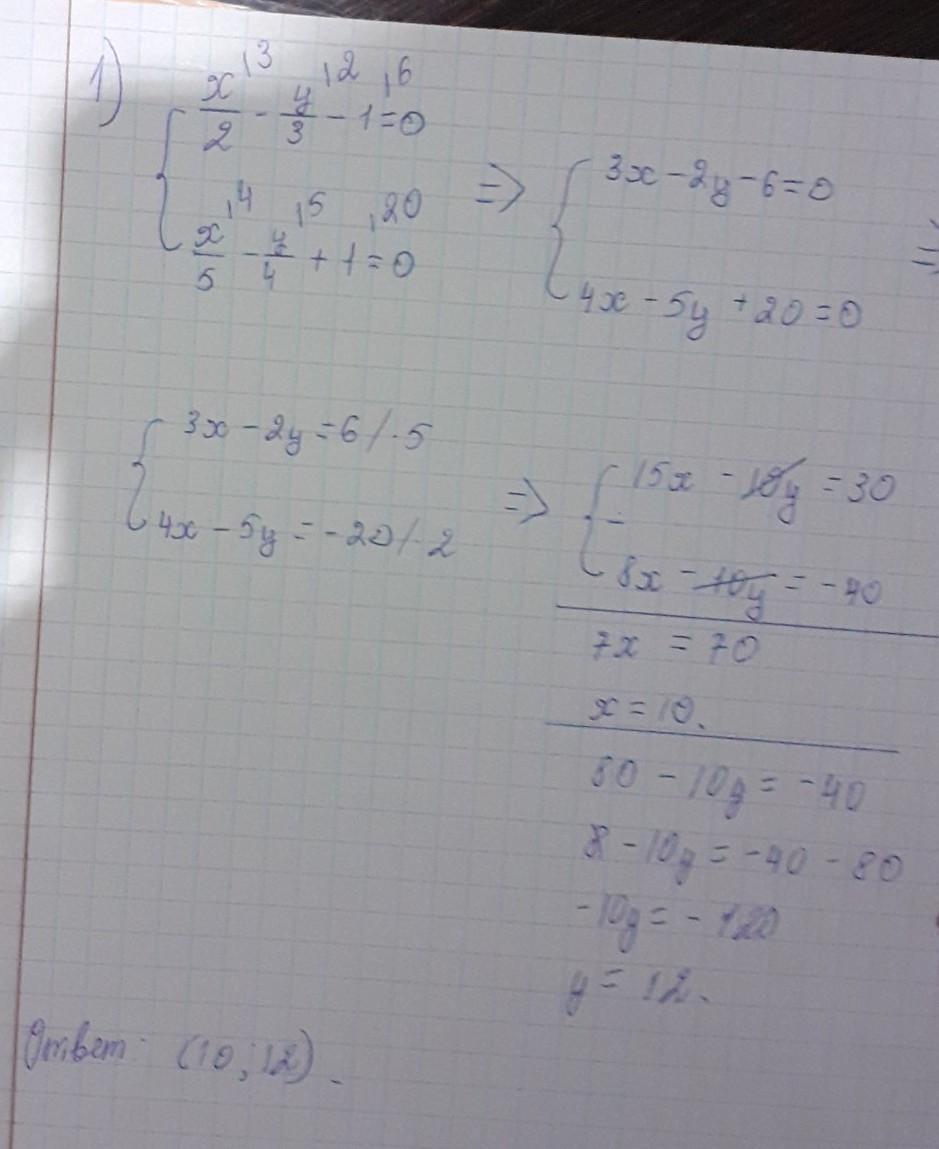 1) { x/2 ˌ3 - y/3 ˌ2 - 1 ˌ6 = 0
x/5 ˌ4 - y/4 ˌ5 + 1 ˌ20 = 0
=> { 3x - 2y - 6 = 0
4x - 5y + 20 = 0
=>
{ 3x - 2y = 6 / · 5
4x - 5y = -20 / · 2
=> { 15x - 10y = 30
-
8x - 10y = -40
7x = 70
x = 10.
80 - 10y = -40
8 - 10y = -40 - 80
-10y = -120
y = 12.
Ответ: (10; 12).